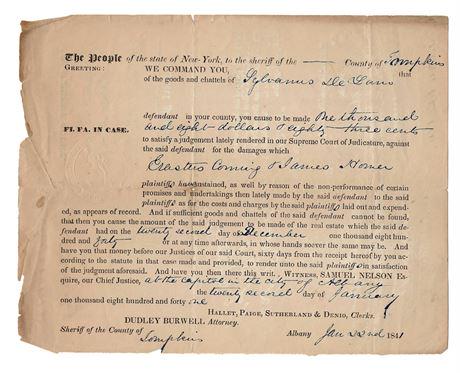 The People of the state of New-York, to the sheriff of the — County of Tompkins
GREETING: WE COMMAND YOU, that
of the goods and chattels of Sylvanus
defendant in your county, you cause to be made One thousand
FI. FA. IN CASE. and eight dollars & eighty three cents
to satisfy a judgement lately rendered in our Supreme Court of Judicature, against
the said defendant for the damages which
Erastus Corning & James Horner
plaintiffs ha sustained, as well by reason of the non-performance of certain
promises and undertakings then lately made by the said defendant to the said
plaintiffs as for the costs and charges by the said plaintiffs laid out and expend-
ed, as appears of record. And if sufficient goods and chattels of the said defendant cannot be found,
that then you cause the amount of the said judgement to be made of the real estate which the said de-
fendant had on the twenty second day of December one thousand eight hun-
dred and forty or at any time afterwards, in whose hands soever the same may be. And
have you that money before our Justices of our said Court, sixty days from the receipt hereof by you ac-
cording to the statute in that case made and provided, to render unto the said plaintiffs in satisfaction
of the judgement aforesaid. And have you then there this writ. WITNESS, SAMUEL NELSON Es-
quire, our Chief Justice, at the capitol in the city of Albany
the twenty second day of January
one thousand eight hundred and forty one
HALLET, PAIGE, SUTHERLAND & DENIO, Clerks.
DUDLEY BURWELL Attorney.
Sheriff of the County of Albany Jan 22nd 1841
Tompkins